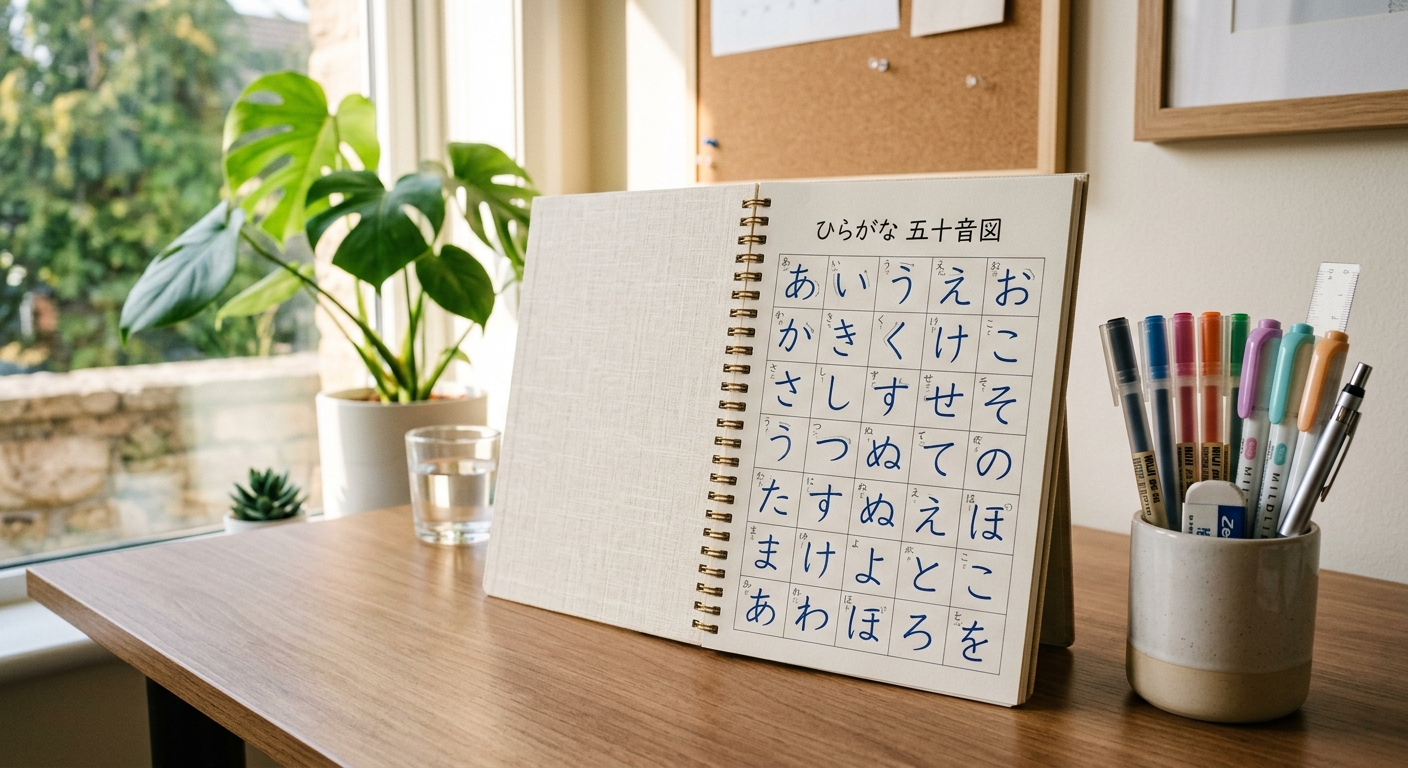 ひらがな 五十音図
あ い う え お
か き く け こ
さ し す せ そ
う つ ぬ て の
た す ぬ え ほ
ま け よ と こ
あ わ ほ ろ を